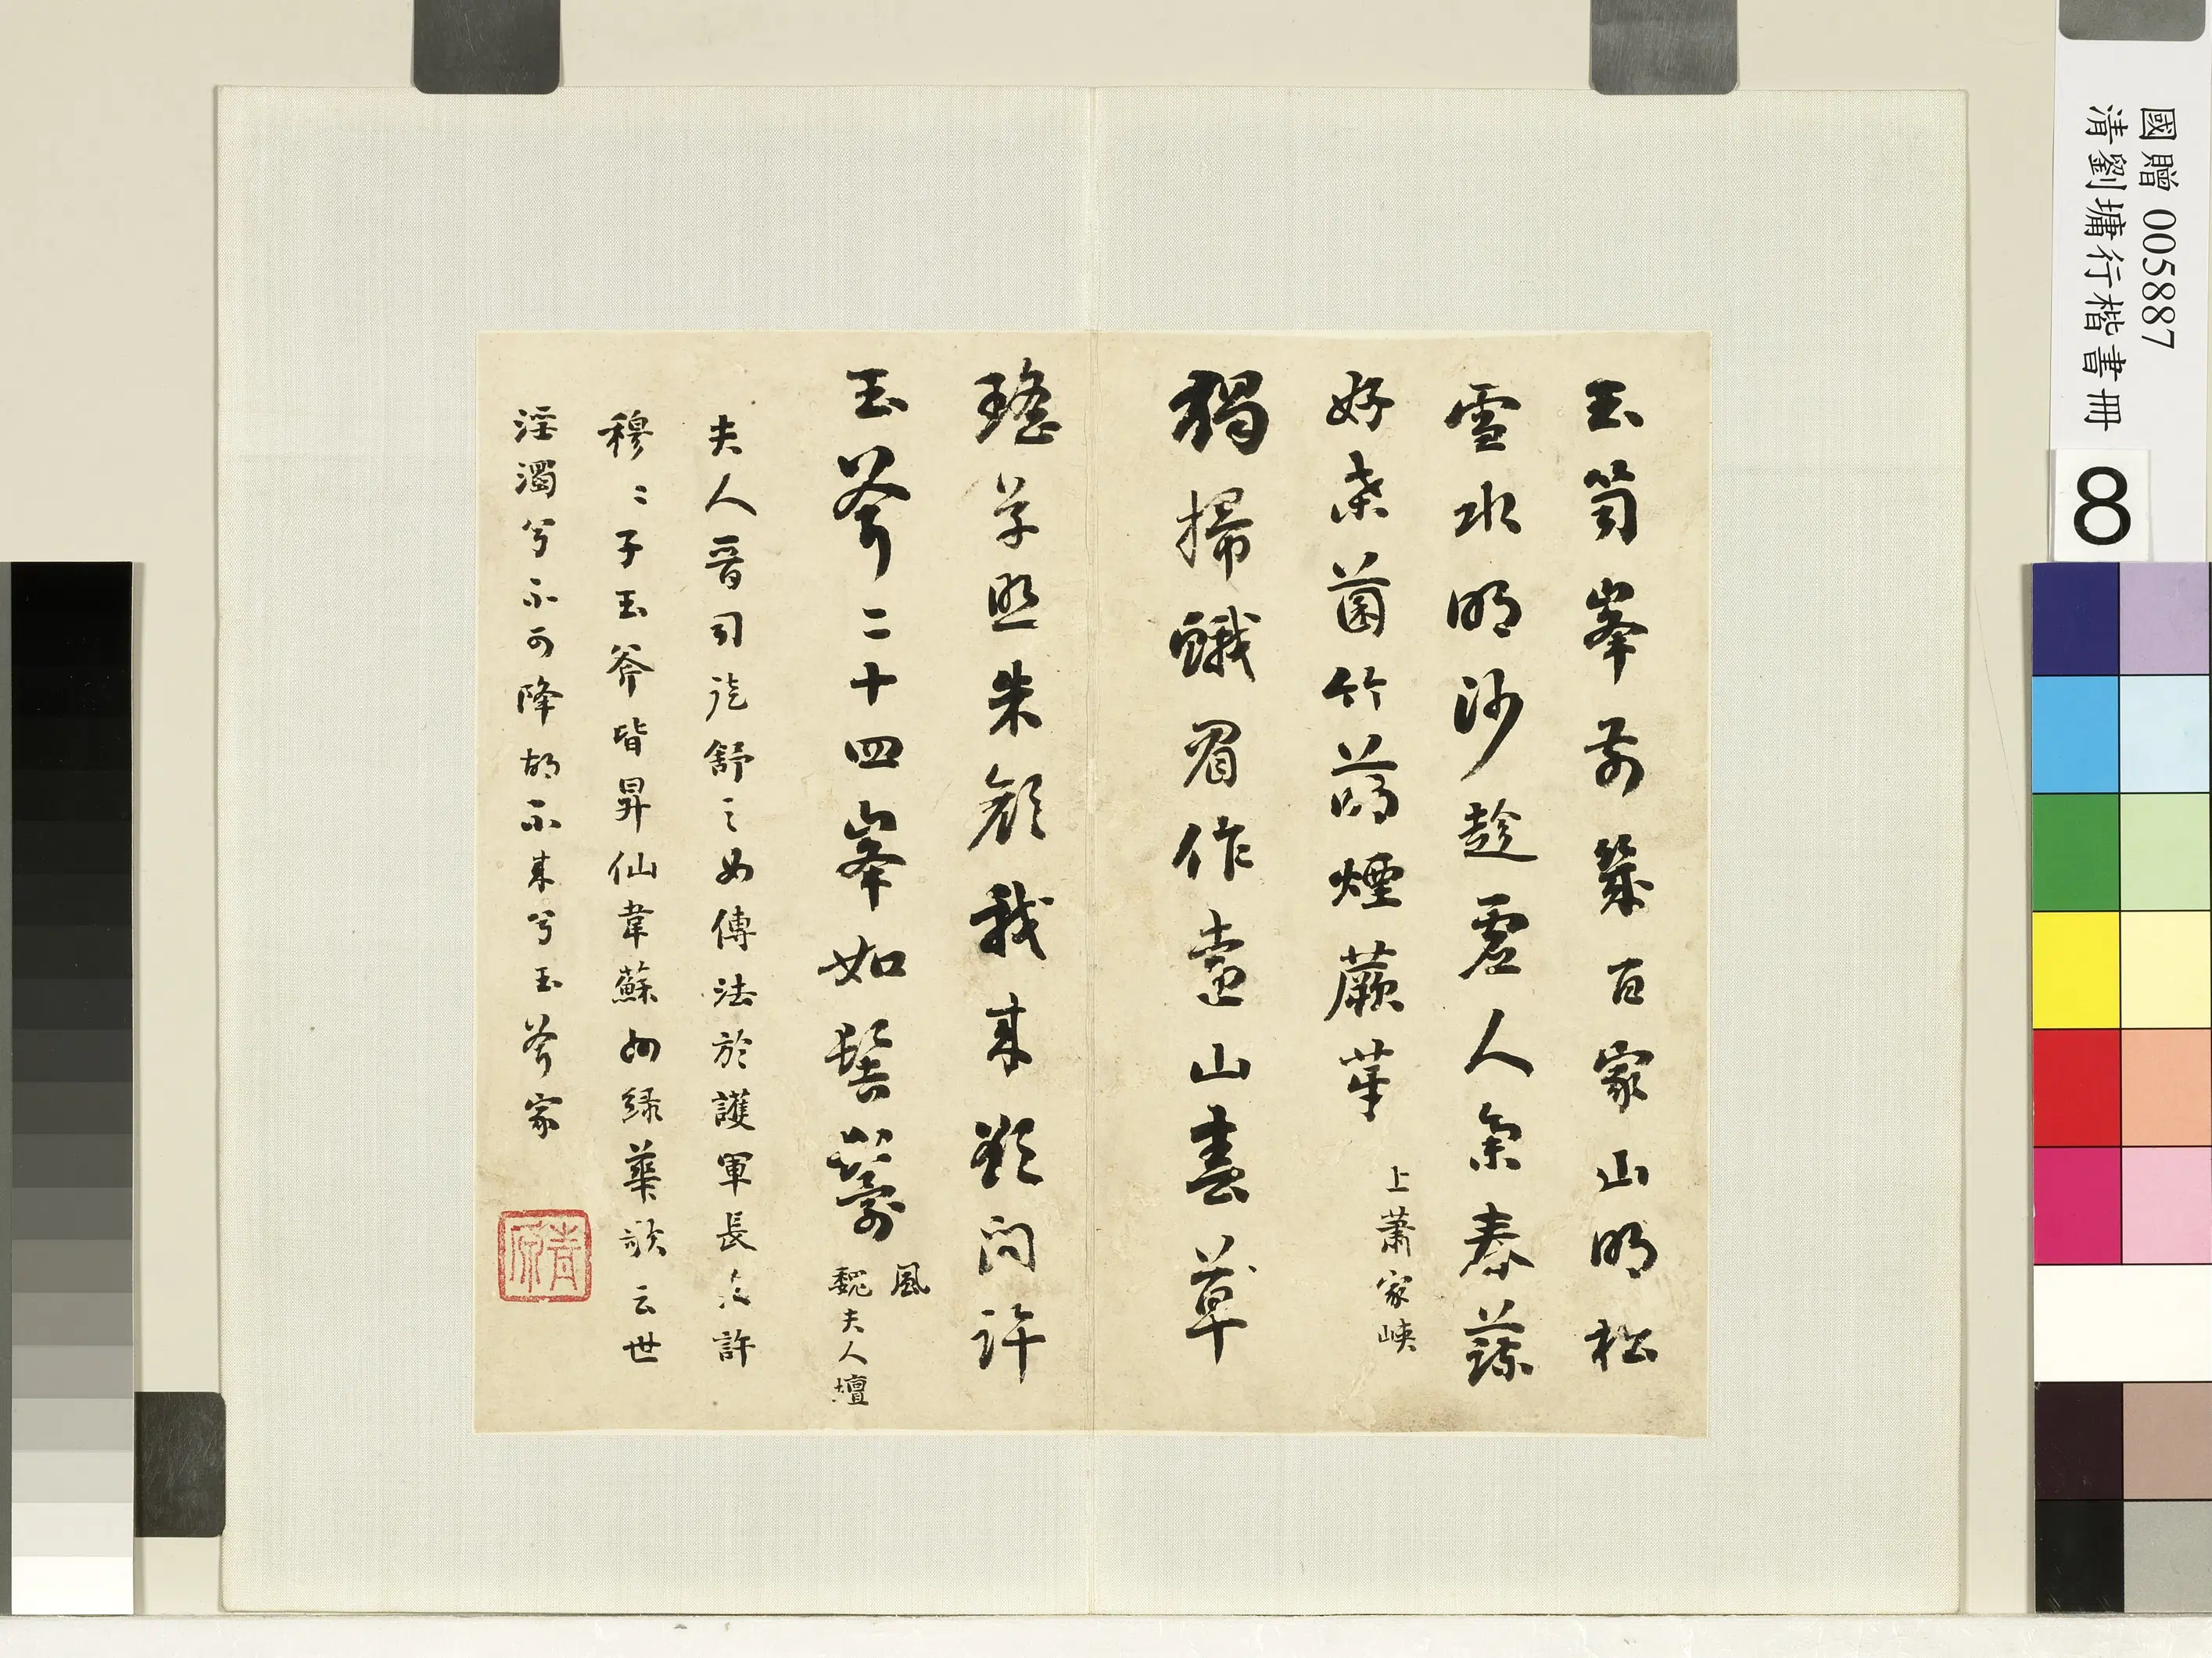 國贈 005887
清劉墉行楷書冊
8
玉笥峯前幾百家山明松
雪水明沙趁虛人集春蔬
好桒菌竹萌煙蕨芽 上蕭家峽
獨掃蛾眉作遠山 草
瑤草照朱顏我來欲問許
玉斧二十四峯如髻鬟 風 魏夫人壇
夫人晉司徒舒之女傳法於護軍長史許
穆〻子玉斧皆昇仙韋蘇州綠華歌云世
淫濁兮不可降胡不來兮玉斧家
青原